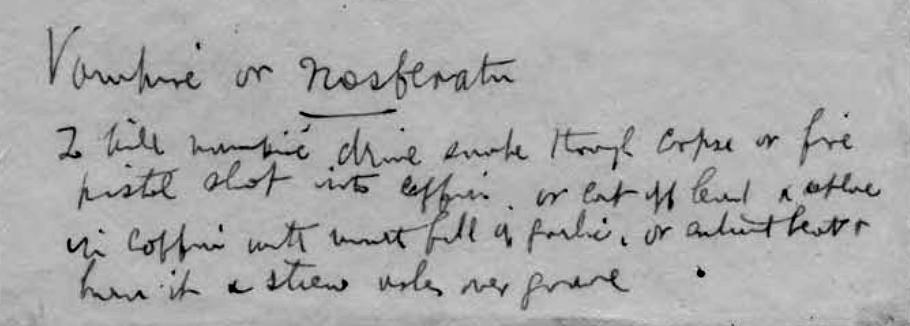 Vampire or Nosferatu
To kill vampire drive snake through corpse or fire
pistol shot into coffin. or cut off head & replace
in coffin with mouth full of garlic, or extract heart &
burn it & strew ashes over grave